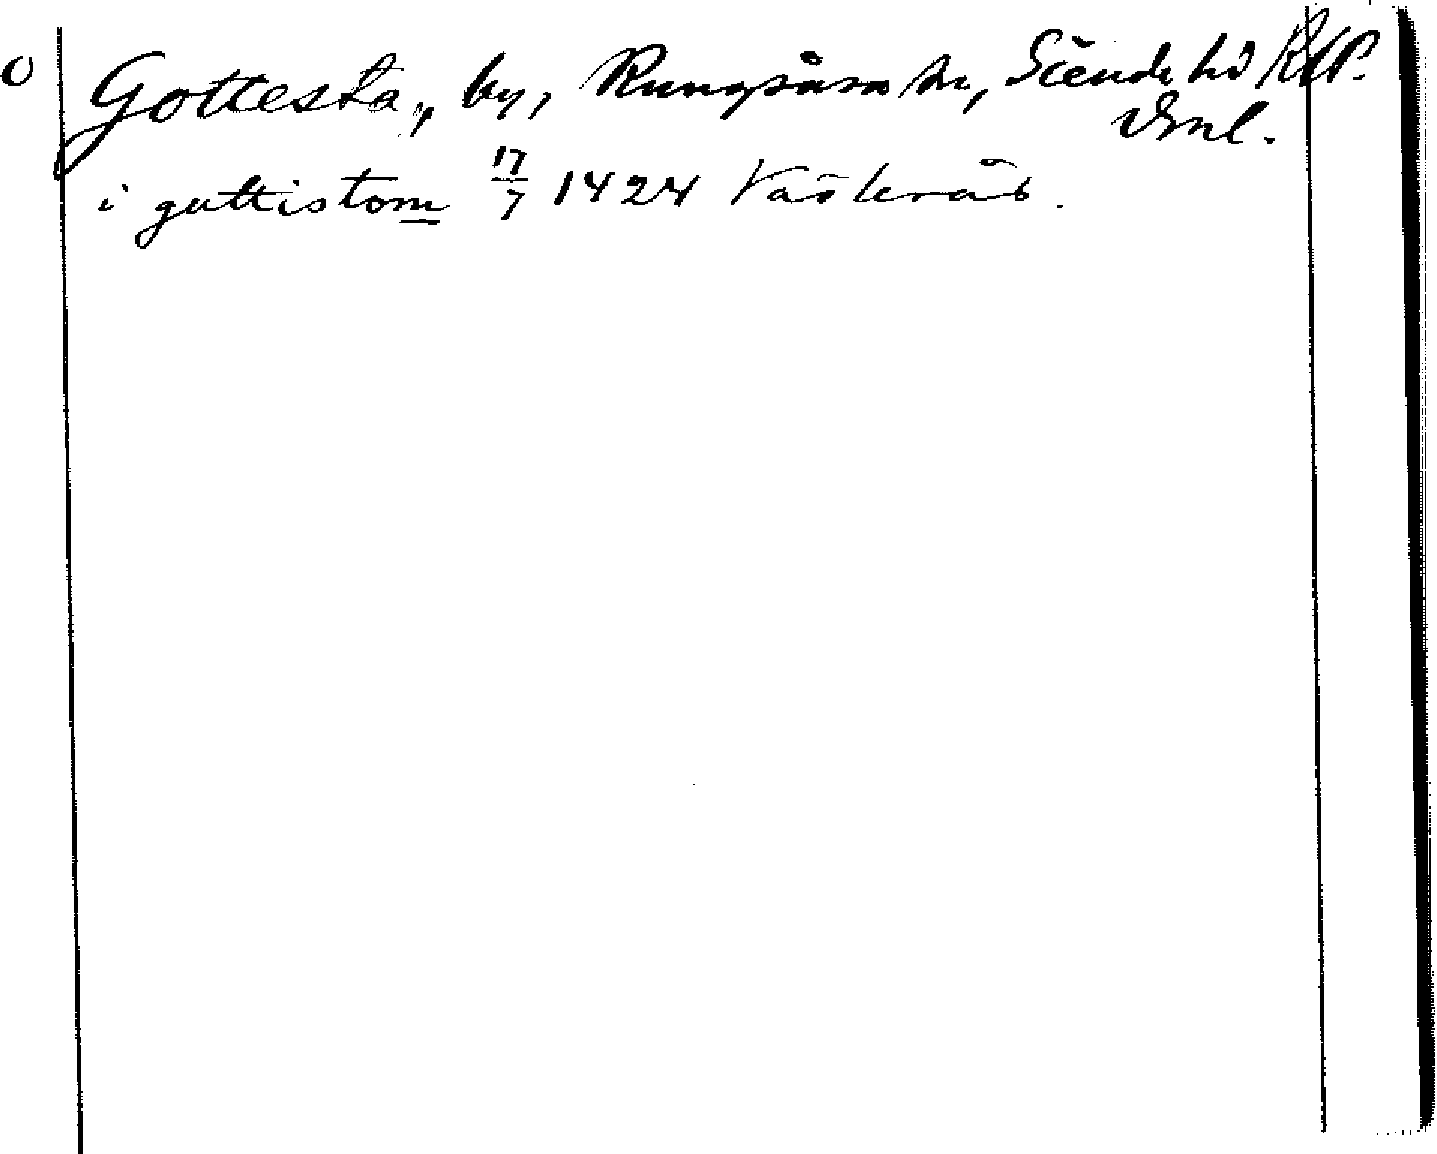 O Gottesta, by, Kungsåra sn, Siende hd
Vml.
i guttistom 17/7 1424 Västerås.